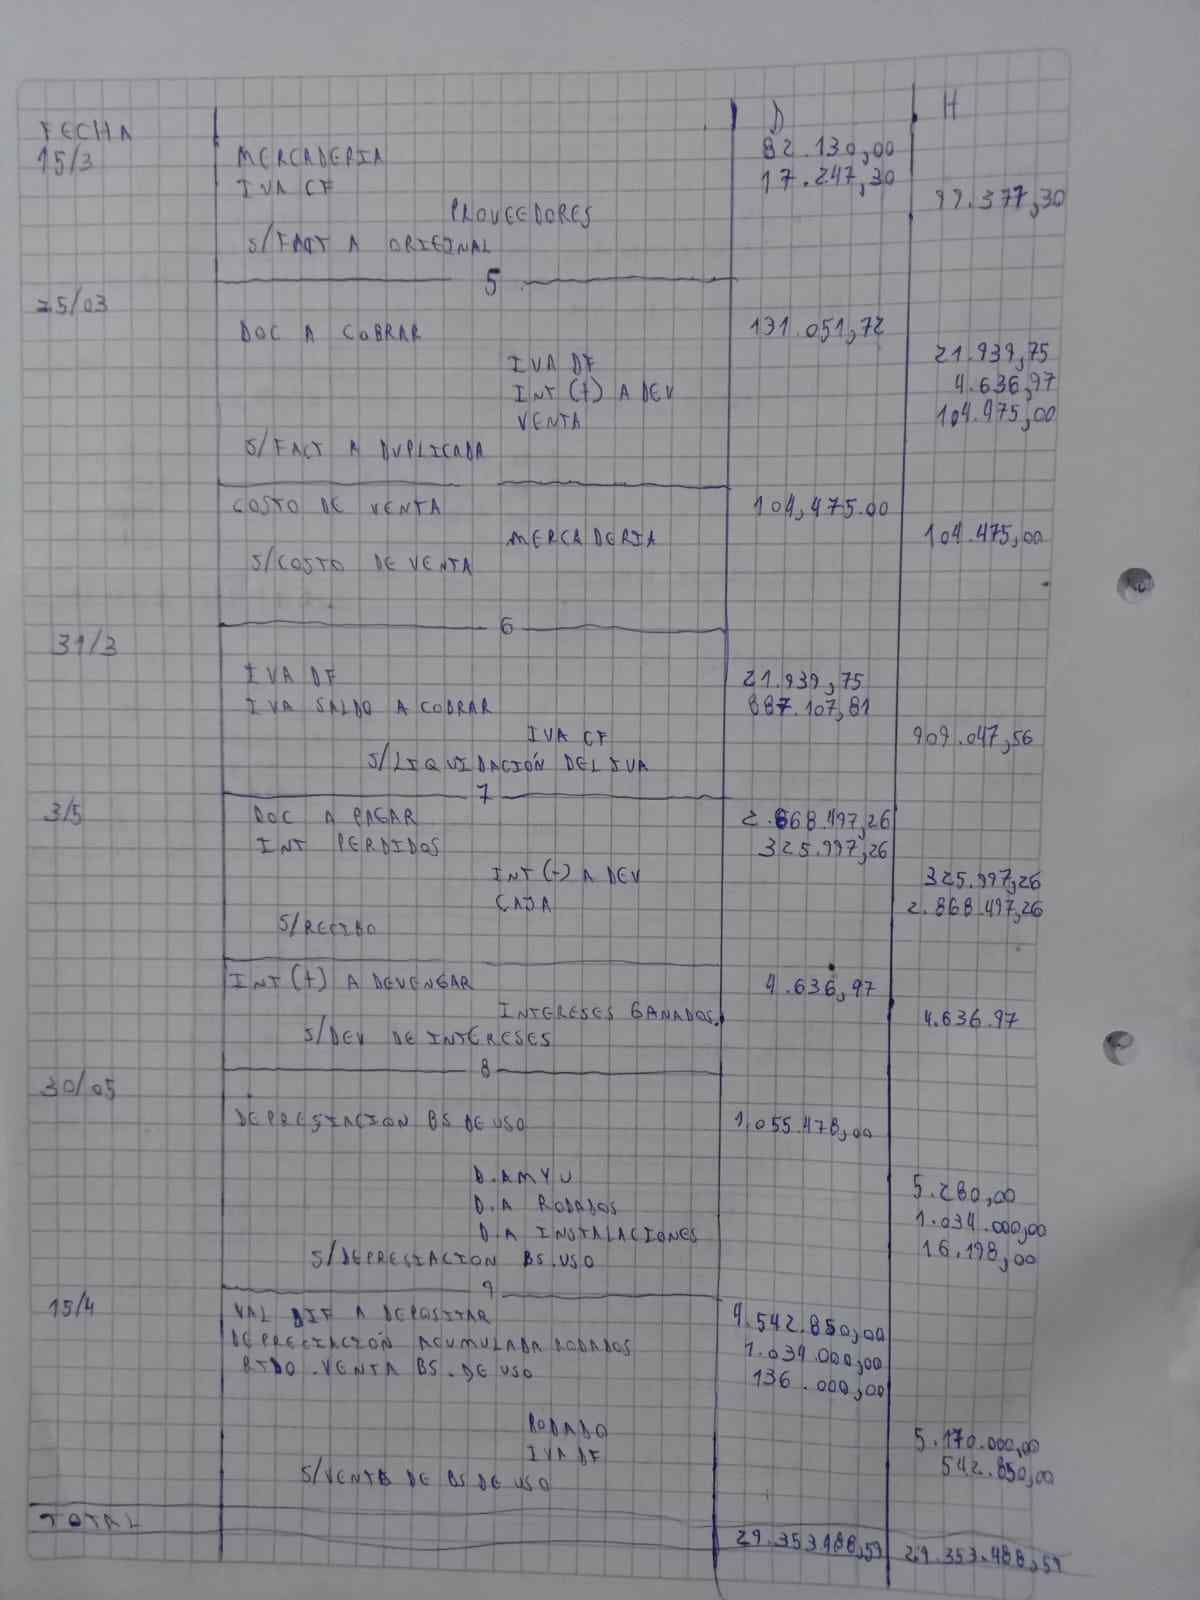 FECHA D H
15/3 MERCADERIA 82.130,00
IVA CF 17.247,30
PROVEEDORES 99.377,30
S/FACT A ORIGINAL
5
25/03
DOC A COBRAR 131.051,72
IVA DF 21.939,75
INT (+) A DEV 4.636,97
VENTA 104.475,00
S/FACT A DUPLICADA
COSTO DE VENTA 104,475.00
MERCADERIA 104.475,00
S/COSTO DE VENTA
6
31/3
IVA DF 21.939,75
IVA SALDO A COBRAR 887.107,81
IVA CF 909.047,56
S/LIQUIDACIÓN DEL IVA
7
3/5 DOC A PAGAR 2.868.497,26
INT PERDIDOS 325.997,26
INT (-) A DEV 325.997,26
CAJA 2.868.497,26
S/RECIBO
INT (+) A DEVENGAR 4.636,97
INTERESES GANADOS. 4.636.97
S/DEV DE INTERESES
8
30/05
DEPRESIACION BS DE USO 1.055.478,00
D.A M Y U 5.280,00
D.A RODADOS 1.034.000,00
D.A INSTALACIONES 16.198,00
S/DEPRECIACION BS.USO
9
15/4 VAL DIF A DEPOSITAR 4.542.850,00
DEPRECIACIÓN ACUMULADA RODADOS 1.034.000,00
RTDO.VENTA BS.DE USO 136.000,00
RODADO 5.170.000,00
IVA DF 542.850,00
S/VENTA DE BS DE USO
TOTAL 29.353488,59 29.353.488,59